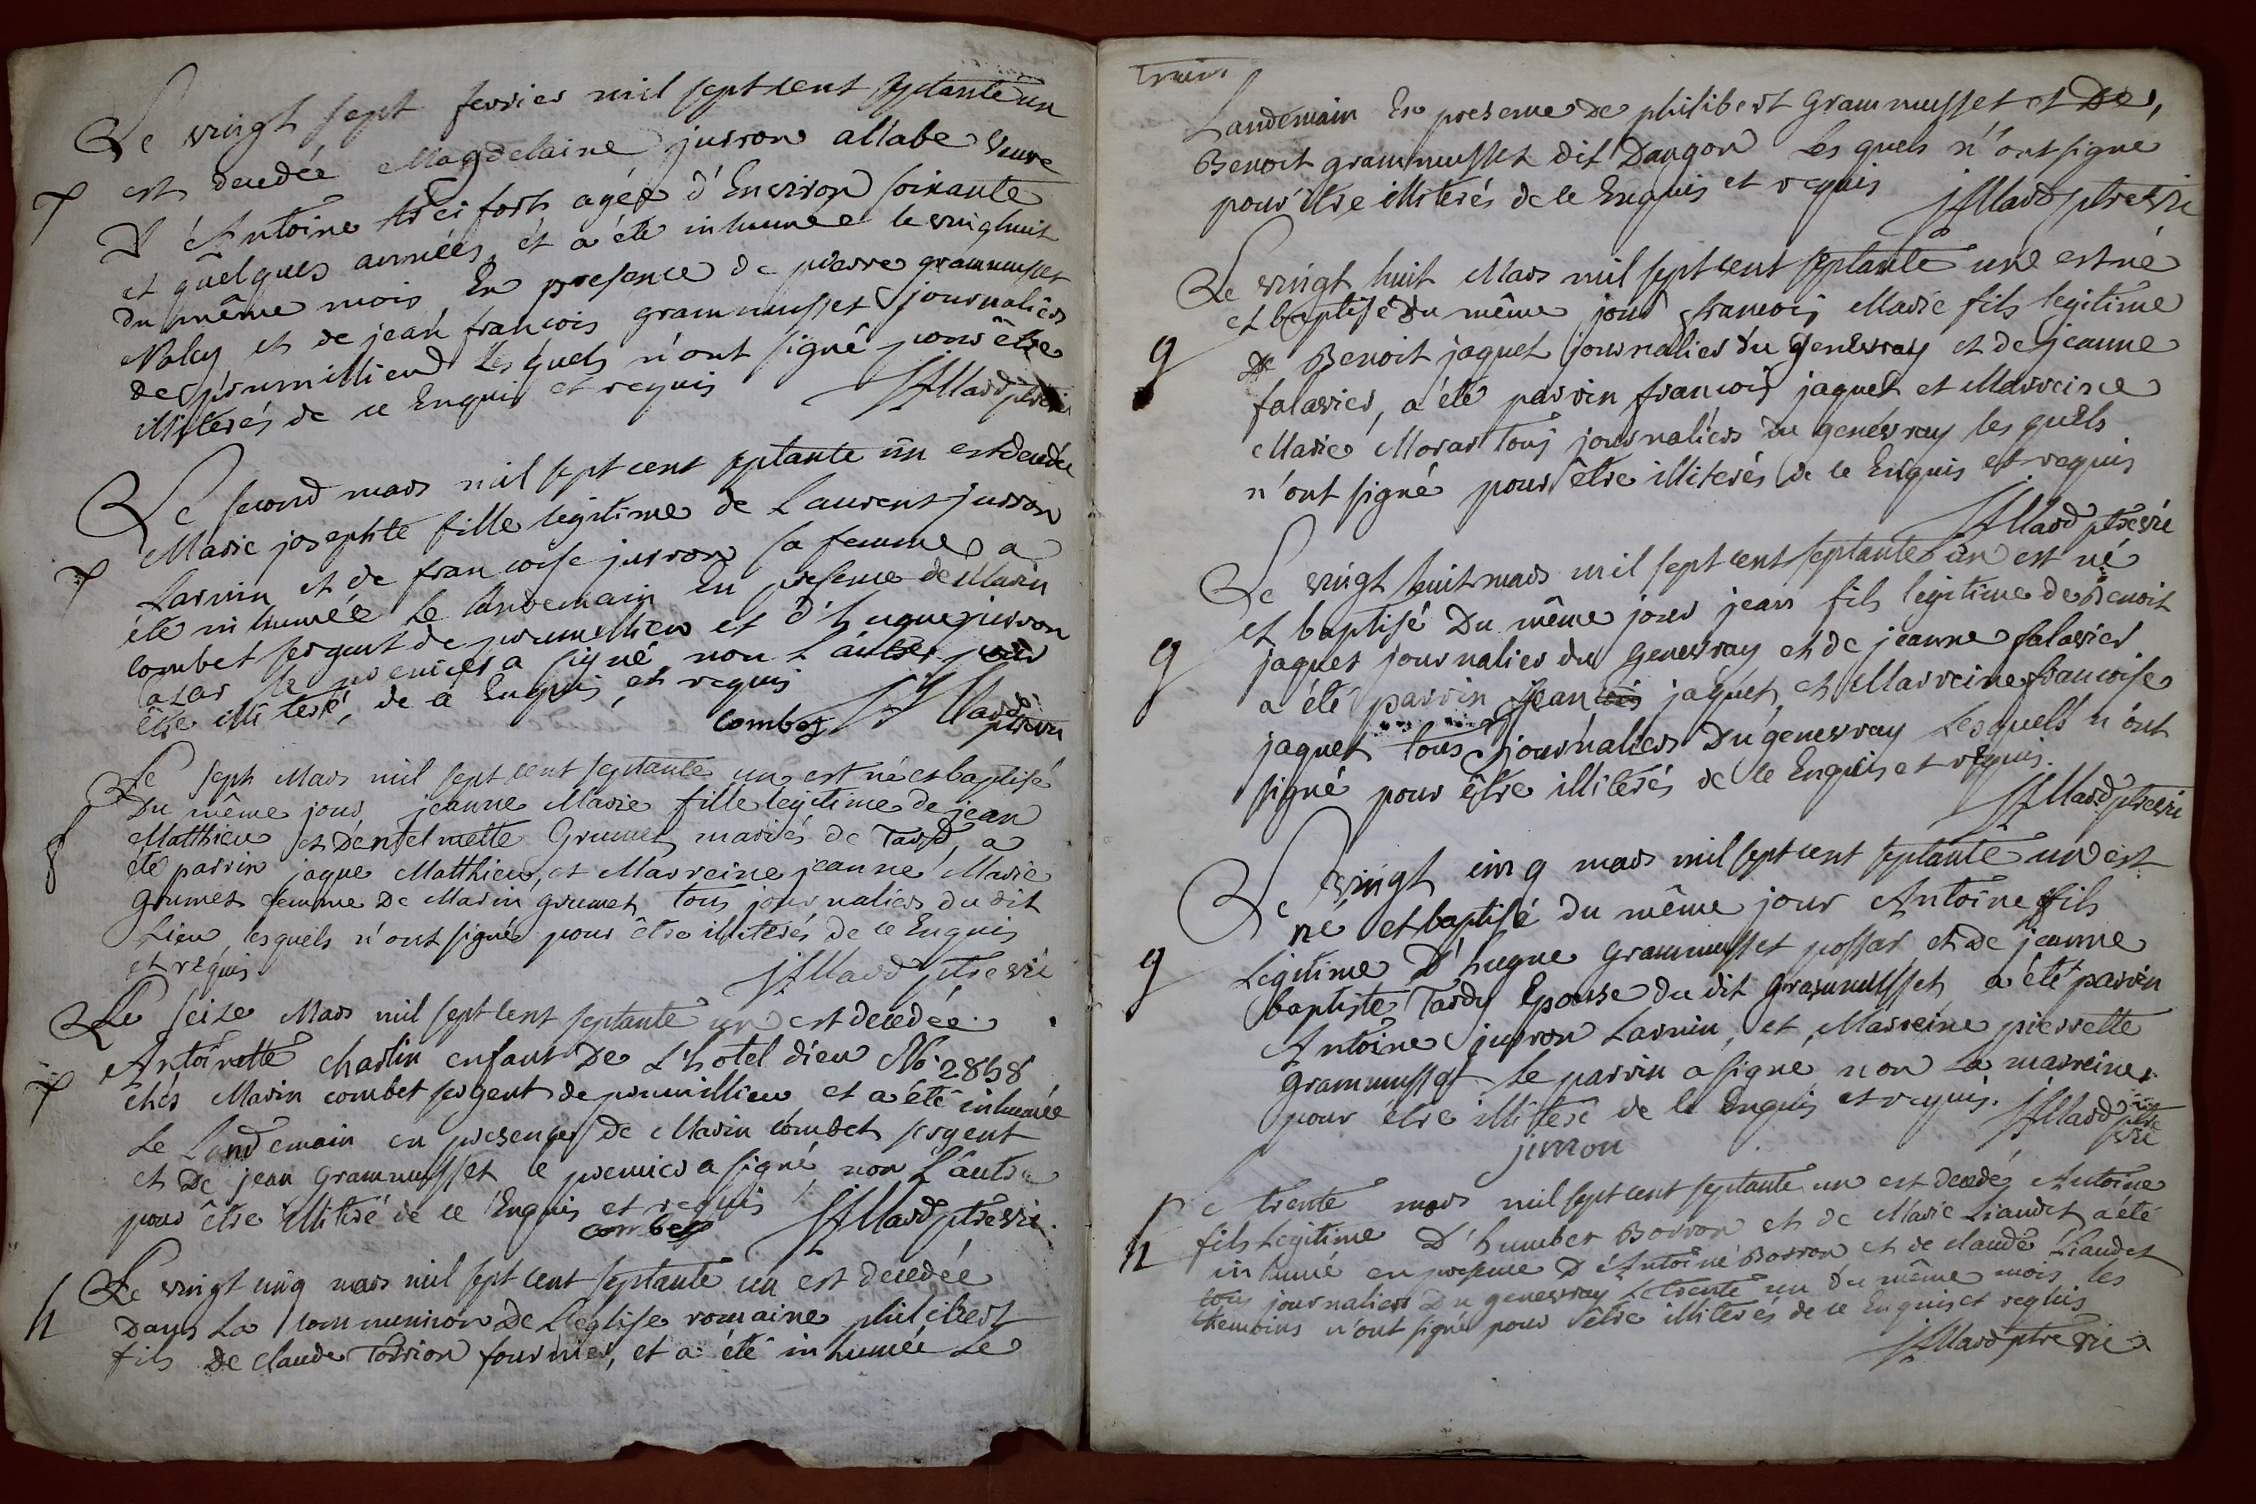 Le vingt sept fevrier mil sept cent septante un
est decedée Magdelaine jurron allabe veuve
D'Antoine treifort agée d'Environ soixante
et quelques années, et a été inhumée le vingthuit
du même mois En presence de pierre grammusset
et de jean francois grammusset journaliers
de prumillieu Les quels n'ont signé pour être
illiterés de ce Enquis et requis
Le second mars mil sept cent septante un est decedée
Marie josephte fille legitime de Laurent jurron
Larnin et de francoise jurron sa femme a
été inhumée Le landemain En presence de Marin
combet sergent de prumillieu et d'hugue jurron
le premier a signé non L'autre pour
être illiteré, de ce Enquis et requis
combet
Le sept Mars mil sept cent septante un est né et baptisé
Du même jour jeanne Marie fille legitime de jean
Matthieu et D'entelmette Grumet mariés de Tard, a
été parrin jaque Matthieu, et Marreine jeanne Marie
Grumet femme De Marin grumet tous journaliers du dit
Lieu lesquels n'ont signé pour être illiterés de ce Enquis
et requis
Le seize Mars mil sept cent septante un est decedée
Antoinette charlin enfant De L'hotel dieu No 2858
chés Marin combet sergent de prumillieu et a été inhumée
Le Landemain en presence de Marin combet sergent
et De jean Grammusset le premier a signé, non L'autre
pour être illiteré de ce Enquis et requis
combet
h Le vingt cinq mars mil sept cent septante un est decedée
Dans La communion De L'eglise romaine philibert
fils De claude Torrion fournier, et a été inhumée Le
Landemain En presence De philibert Grammusset et De
Benoit grammusset dit Dangon Les quels n'ont signé
pour être illiterés de ce Enquis et requis
Le vingt huit Mars mil sept cent septante une est né
et baptisé Du même jour francois Marie fils legitime
g De Benoit jaquet journalier du genevray et de jeanne
falavier, a été parrin francois jaquet et Marreine
Marie Moras Tous journaliers Du genevray les quels
n'ont signé pour être illiterés de ce Enquis et requis
Le vingt huit mars mil sept cent septante un est né
et baptisé Du même jour jean fils legitime de Benoit
g jaquet journalier du Genevray et de jeanne falavier
a été parrin jean jaquet, et Marreine francoise
jaquet tous journaliers Du genevray Les quels n'ont
signé pour être illiterés de ce Enquis et requis.
Le vingt cinq mars mil sept cent septante un est
né et baptisé du même jour Antoine fils
g Legitime D'hugue Grammusset possar et De jeanne
baptiste Tardy Epouse du dit Grammusset, a été parrin
Antoine jurron Larnin, et Marreine pierrette
Grammusset. le parrin a signé non La marreine
pour être illiteré de ce Enquis et requis.
jurron
Le trente mars mil sept cent septante un est decedé Antoine
h fils Legitime D'humber Borron et de Marie Liaudet a été
inhumé en presence D'Antoine Borron et de claude Liaudet
tous journaliers Du genevray Le trente un du même mois les
themoins n'ont signé pour être illiterés de ce Enquis et requis